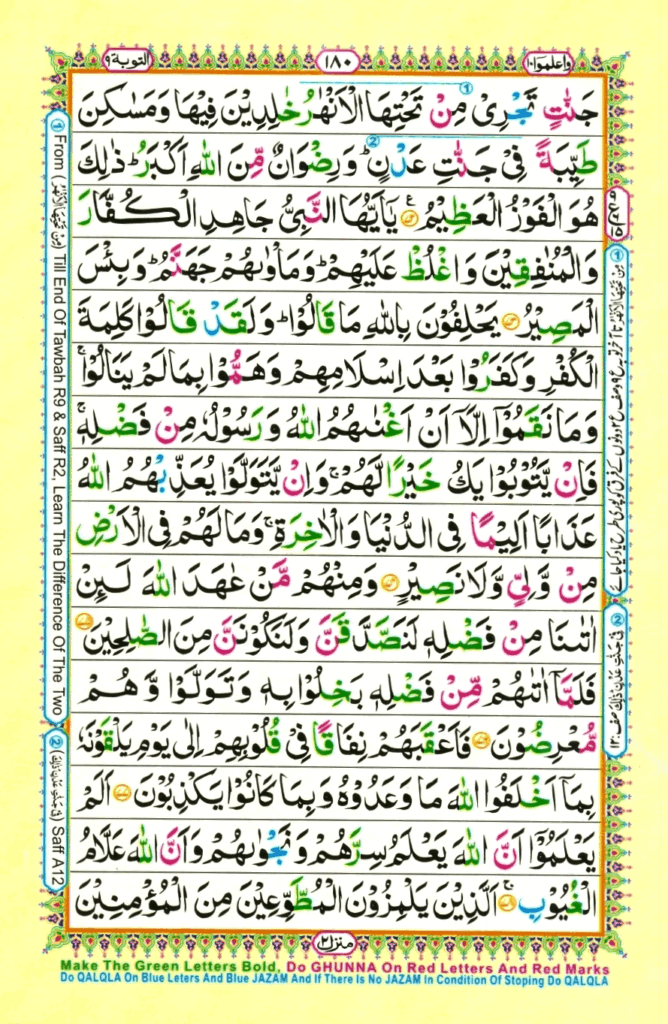 واعلموا ١٠
١٨٠
التوبة ٩
جَنّٰتٍ تَجْرِیْ مِنْ تَحْتِهَا الْاَنْهٰرُ خٰلِدِیْنَ فِیْهَا وَمَسٰكِنَ
طَیِّبَةً فِیْ جَنّٰتِ عَدْنٍ ؕ وَرِضْوَانٌ مِّنَ اللّٰهِ اَكْبَرُ ؕ ذٰلِكَ
هُوَ الْفَوْزُ الْعَظِیْمُ ۞ یٰۤاَیُّهَا النَّبِیُّ جَاهِدِ الْكُفَّارَ
وَالْمُنٰفِقِیْنَ وَاغْلُظْ عَلَیْهِمْ ؕ وَمَاْوٰىهُمْ جَهَنَّمُ ؕ وَبِئْسَ
الْمَصِیْرُ ۞ یَحْلِفُوْنَ بِاللّٰهِ مَا قَالُوْا ؕ وَلَقَدْ قَالُوْا كَلِمَةَ
الْكُفْرِ وَكَفَرُوْا بَعْدَ اِسْلَامِهِمْ وَهَمُّوْا بِمَا لَمْ یَنَالُوْا ۚ
وَمَا نَقَمُوْۤا اِلَّاۤ اَنْ اَغْنٰىهُمُ اللّٰهُ وَرَسُوْلُهٗ مِنْ فَضْلِهٖ ۚ
فَاِنْ یَّتُوْبُوْا یَكُ خَیْرًا لَّهُمْ ۚ وَاِنْ یَّتَوَلَّوْا یُعَذِّبْهُمُ اللّٰهُ
عَذَابًا اَلِیْمًا فِی الدُّنْیَا وَالْاٰخِرَةِ ۚ وَمَا لَهُمْ فِی الْاَرْضِ
مِنْ وَّلِیٍّ وَّلَا نَصِیْرٍ ۞ وَمِنْهُمْ مَّنْ عٰهَدَ اللّٰهَ لَىِٕنْ
اٰتٰىنَا مِنْ فَضْلِهٖ لَنَصَّدَّقَنَّ وَلَنَكُوْنَنَّ مِنَ الصّٰلِحِیْنَ ۞
فَلَمَّاۤ اٰتٰىهُمْ مِّنْ فَضْلِهٖ بَخِلُوْا بِهٖ وَتَوَلَّوْا وَّهُمْ
مُّعْرِضُوْنَ ۞ فَاَعْقَبَهُمْ نِفَاقًا فِیْ قُلُوْبِهِمْ اِلٰى یَوْمِ یَلْقَوْنَهٗ
بِمَاۤ اَخْلَفُوا اللّٰهَ مَا وَعَدُوْهُ وَبِمَا كَانُوْا یَكْذِبُوْنَ ۞ اَلَمْ
یَعْلَمُوْۤا اَنَّ اللّٰهَ یَعْلَمُ سِرَّهُمْ وَنَجْوٰىهُمْ وَاَنَّ اللّٰهَ عَلَّامُ
الْغُیُوْبِ ۞ اَلَّذِیْنَ یَلْمِزُوْنَ الْمُطَّوِّعِیْنَ مِنَ الْمُؤْمِنِیْنَ
منزل ٢
① From (مِنْ تَحْتِهَا الْاَنْهٰرُ) Till End Of Tawbah R9 & Saff R2, Learn The Difference Of The Two
② (فِیْ جَنّٰتِ عَدْنٍ ذٰلِكَ) Saff A12
② فِیْ جَنّٰتِ عَدْنٍ ذٰلِكَ صف ١٢
Make The Green Letters Bold, Do GHUNNA On Red Letters And Red Marks
Do QALQLA On Blue Leters And Blue JAZAM And If There Is No JAZAM In Condition Of Stoping Do QALQLA